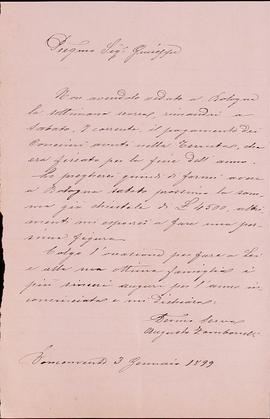 Pregmo Sigr. Giuseppe
Non avendolo veduto a Bologna
la settimana scorsa, rimandai a
sabato, 7 corrente, il pagamento dei
Concimi avuti nella Tenuta, che
era fissato per la fine dell'anno.
La pregherei quindi di farmi avere
a Bologna sabato prossimo la som-
ma già chiestale di £ 4500, altri-
menti mi esporrei a fare una pes-
sima figura.
Colgo l'occasione per fare a Lei
e alla sua ottima famiglia i
più sinceri auguri per l'anno in-
cominciato e mi dichiaro
Devmo servo
Augusto
3 Gennaio 1899